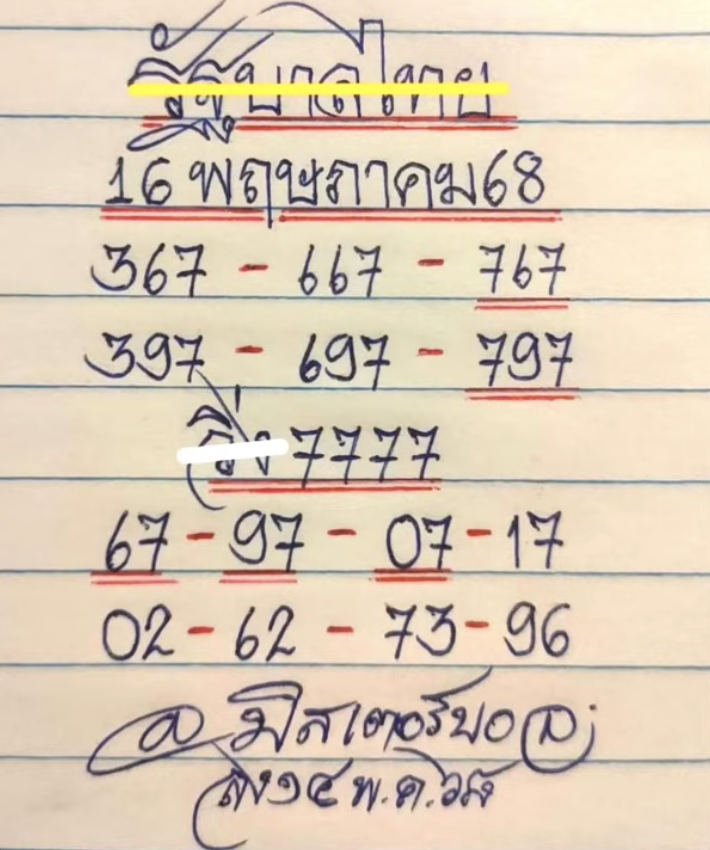 รัฐบาลไทย
16 พฤษภาคม 68
367 - 667 - 767
397 - 697 - 797
วิ่ง 7777
67 - 97 - 07 - 17
02 - 62 - 73 - 96
มิสเตอร์บอล
๑๔ พ.ค.